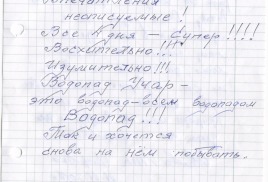 Впечатления
неописуемые!
Все 4 дня – супер!!!!
Восхительно!!!
Изумительно!!!
Водопад Учар –
это водопад-всем водопадам
Водопад!!!
Так и хочется
снова на нём побывать.